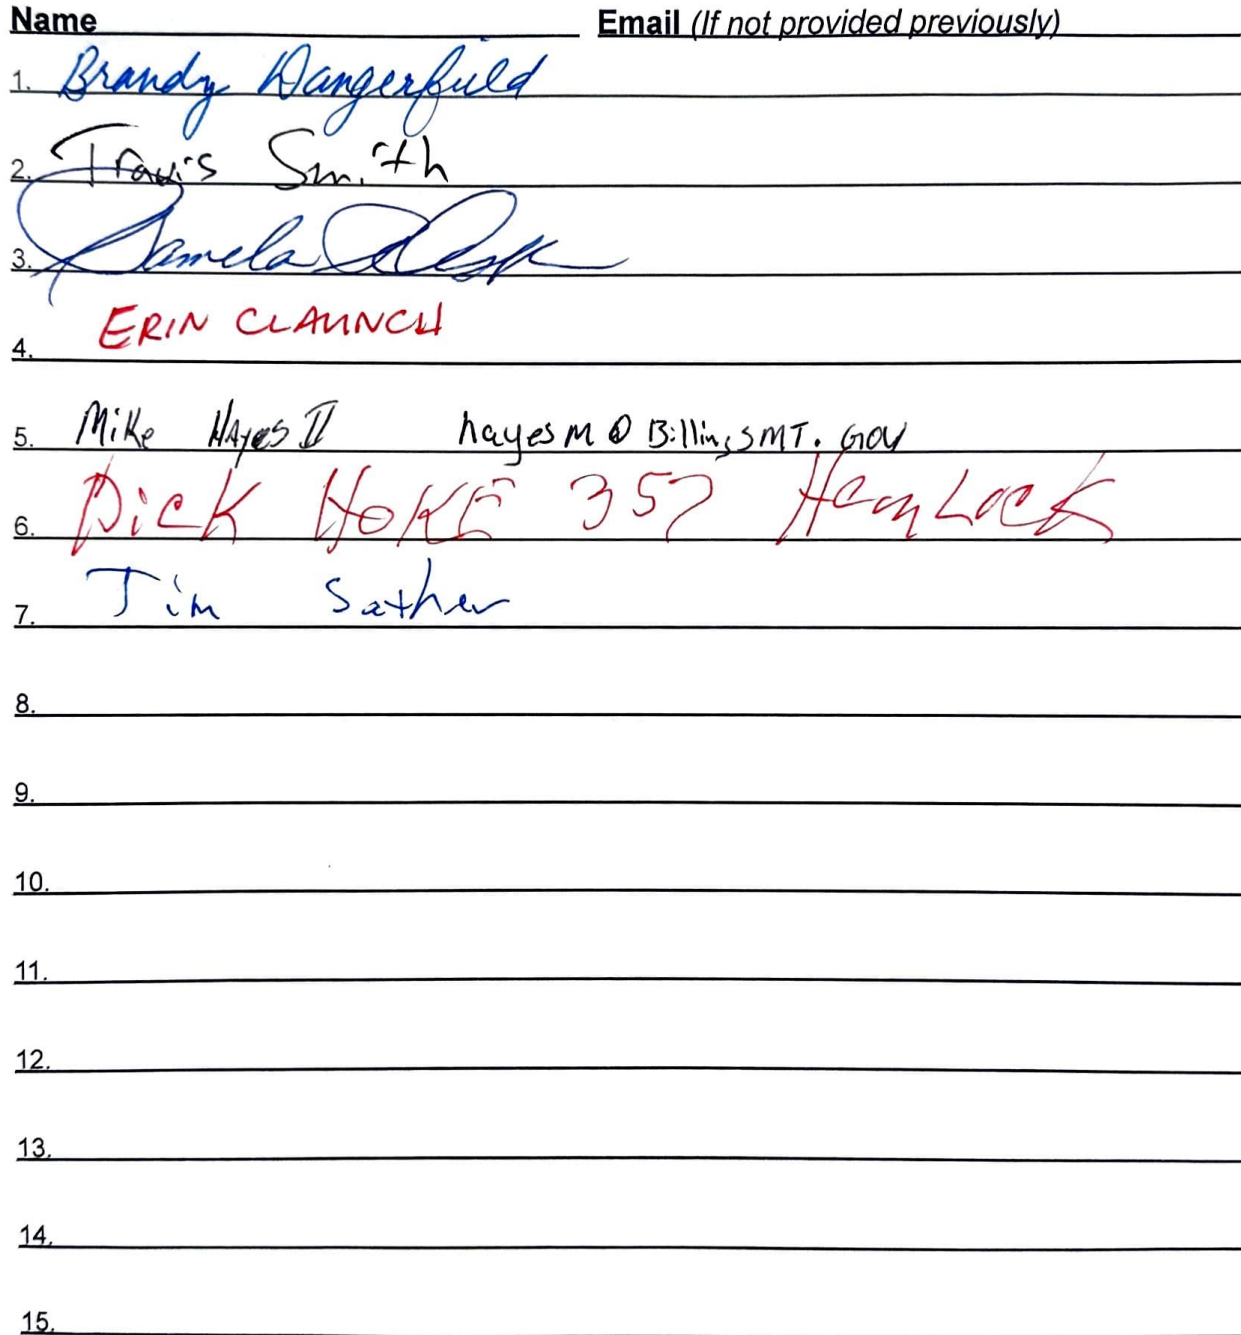 Name Email (If not provided previously)
1. Brandy Dangerfield
2. Travis Smith
3. Pamela
4. ERIN CLAUNCH
5. Mike Hayes II hayesm@BillingsMT.GOV
6. Dick HOKE 357 HemLock
7. Jim Sather
8.
9.
10.
11.
12.
13.
14.
15.